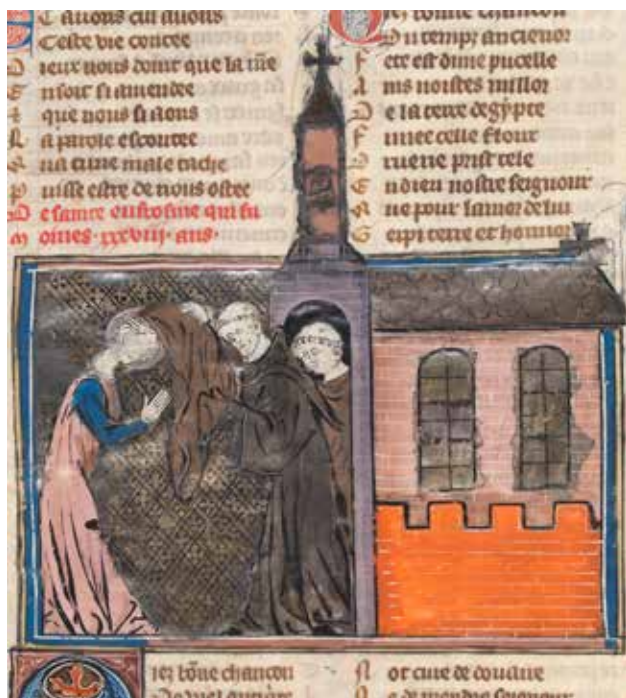 auons
Ceste vie contee
D ieux nous doint que la
E nsoit si amendee
que nous si aions
L a parole escoutee
male tache
P uisse estre de nous ostee
D e sainte eufrosine qui fu
M oines .xxviij. ans.
iez bonne chancon
D u temps ancienor
F ete est dune pucelle
A ins noistes millor
D e la terre degypte
F u nee celle flour
D rue ne prist tele
E n dieu nostre seignour
Q ue pour lamor de lui
G erpi terre et honnor
iez bõne chancon
cure de